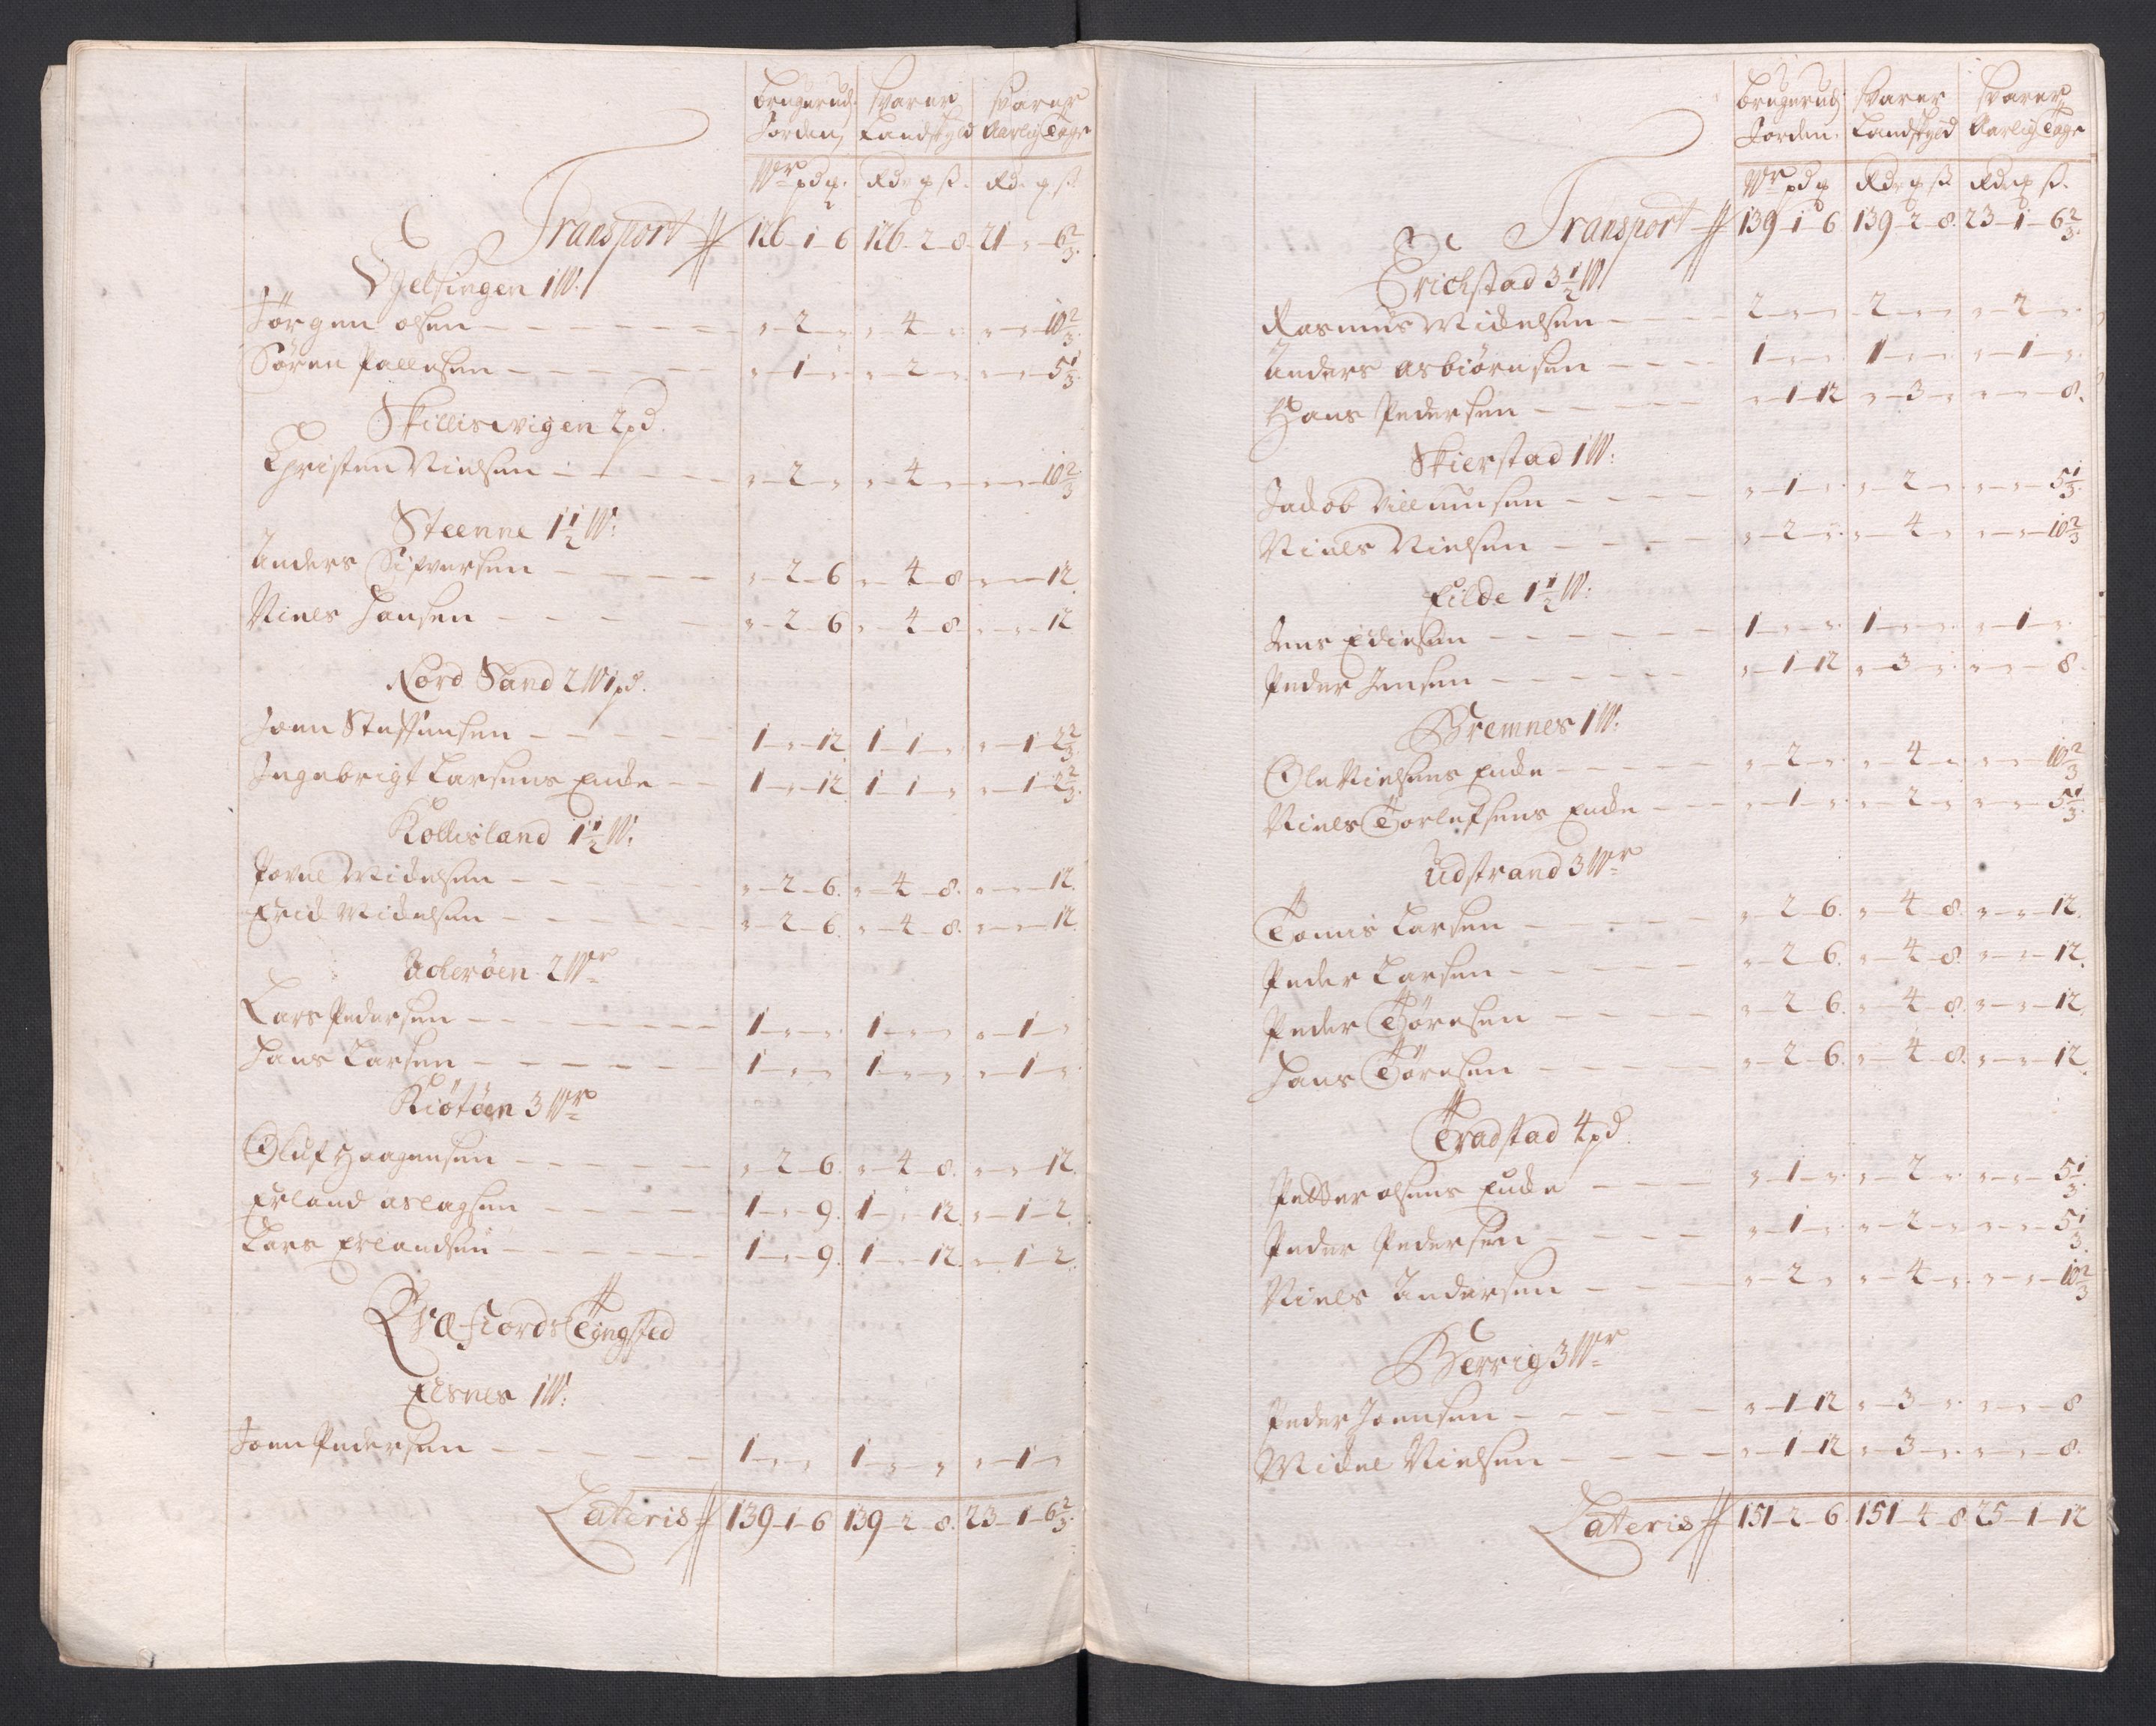 brugerud svarer svarer
Jorden Landskyld Aarlig Tage
Wr pd q. Rdr q ß. Rdr q ß.
Transport 126-1-6 126-2-8. 21-"-6 2/3.
Hielsingen 1 W.
Jörgen olsen - "-2-" "-4-" "-"-10 2/3.
Sören Pallesen - "-1-" "-2-" "-"-5 1/3.
Skilliswigen 2 pd.
Christen Nielsen - "-2-" "-4-" "-"-10 2/3
Steenne 1 1/2 W.
Anders Sifversen - "-2-6 "-4-8 "-"-12.
Niels Hansen - "-2-6 "-4-8 "-"-12
Nord Sand 2 W 1 pd.
Joen Steffensen - 1-"-12 1-1-" "-1-2 2/3.
Ingebrigt Larsens Encke - 1-"-12 1-1-" "-1-2 2/3.
Kollisland 1 1/2 W.
Povel Mickelsen - "-2-6. "-4-8. "-"-12.
Erick Mickelsen - "-2-6. "-4-8. "-"-12.
Uderöen 2 Wr
Lars Pedersen - 1-"-" 1-"-" "-1-"
Hans Larsen - 1-"-" 1-"-" "-1-"
Kiötöen 3 Wr
Oluf Haagensen - "-2-6. "-4-8. "-"-12.
Erland Aslagsen - 1-"-9. 1-"-12. "-1-2.
Lars Erlandsen - 1-"-9. 1-"-12. "-1-2.
Qvæfiords Tingsted
Elsnes 1 W.
Joen Pedersen - 1-"-" 1-"-" "-1-"
Lateris 139-1-6 139-2-8. 23-1-6 2/3.
brugerud svarer svarer
Jorden. Landskyld Aarlig Tage
Wr pd q Rdr q ß Rdr q ß.
Transport 139-1-6 139-2-8. 23-1-6 2/3.
Erichstad 3 1/2 W
Rasmus Mickelsen - 2-"-" 2-"-" "-2-"
Anders Asbiörnsen - 1-"-" 1-"-" "-1-"
Hans Pedersen - "-1-12 "-3-" "-"-8.
Skierstad 1 W.
Jackob Villumsen - "-1-" "-2-" "-"-5 1/3.
Niels Nielsen - "-2-" "-4-" "-"-10 2/3
Eilde 1 1/2 W.
Jens Edisen - 1-"-" 1-"-" "-1-"
Peder Jensen - "-1-12 "-3-" "-"-8.
Bremnes 1 W.
Ole Nielsens Encke - "-2-" "-4-" "-"-10 2/3
Niels Torlefsens Encke - "-1-" "-2-" "-"-5 1/3.
Udstrand 3 Wr
Tomis Larsen - "-2-6. "-4-8. "-"-12.
Peder Larsen - "-2-6. "-4-8. "-"-12.
Peder Töresen - "-2-6. "-4-8. "-"-12.
Hans Töresen - "-2-6. "-4-8. "-"-12.
Tradstad 4 pd.
Petter olsens Encke - "-1-" "-2-" "-"-5 1/3.
Peder Pedersen - "-1-" "-2-" "-"-5 1/3.
Niels Andersen - "-2-" "-4-" "-"-10 2/3
Berrig 3 Wr
Peder Joensen - "-1-12 "-3-" "-"-8
Mickel Nielsen - "-1-12 "-3-" "-"-8.
Lateris 151-2-6. 151-4-8 25-1-12